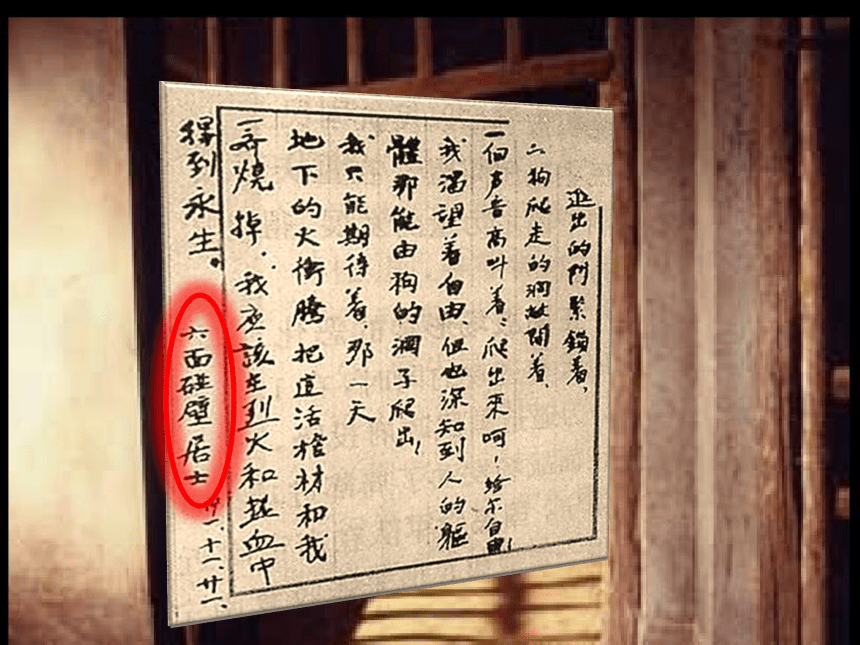 進出的門緊鎖着、
狗爬走的洞敞開着、
一個声音高叫着：爬出來呵，給尔自由！
我渴望着自由、但也深知到人的軀
體那能由狗的洞子爬出！
我只能期待着、那一天
地下的火衝騰把這活棺材和我
一齐燒掉，我应該在烈火和热血中
得到永生。
六面碰壁居士
卅一、十一、廿一、